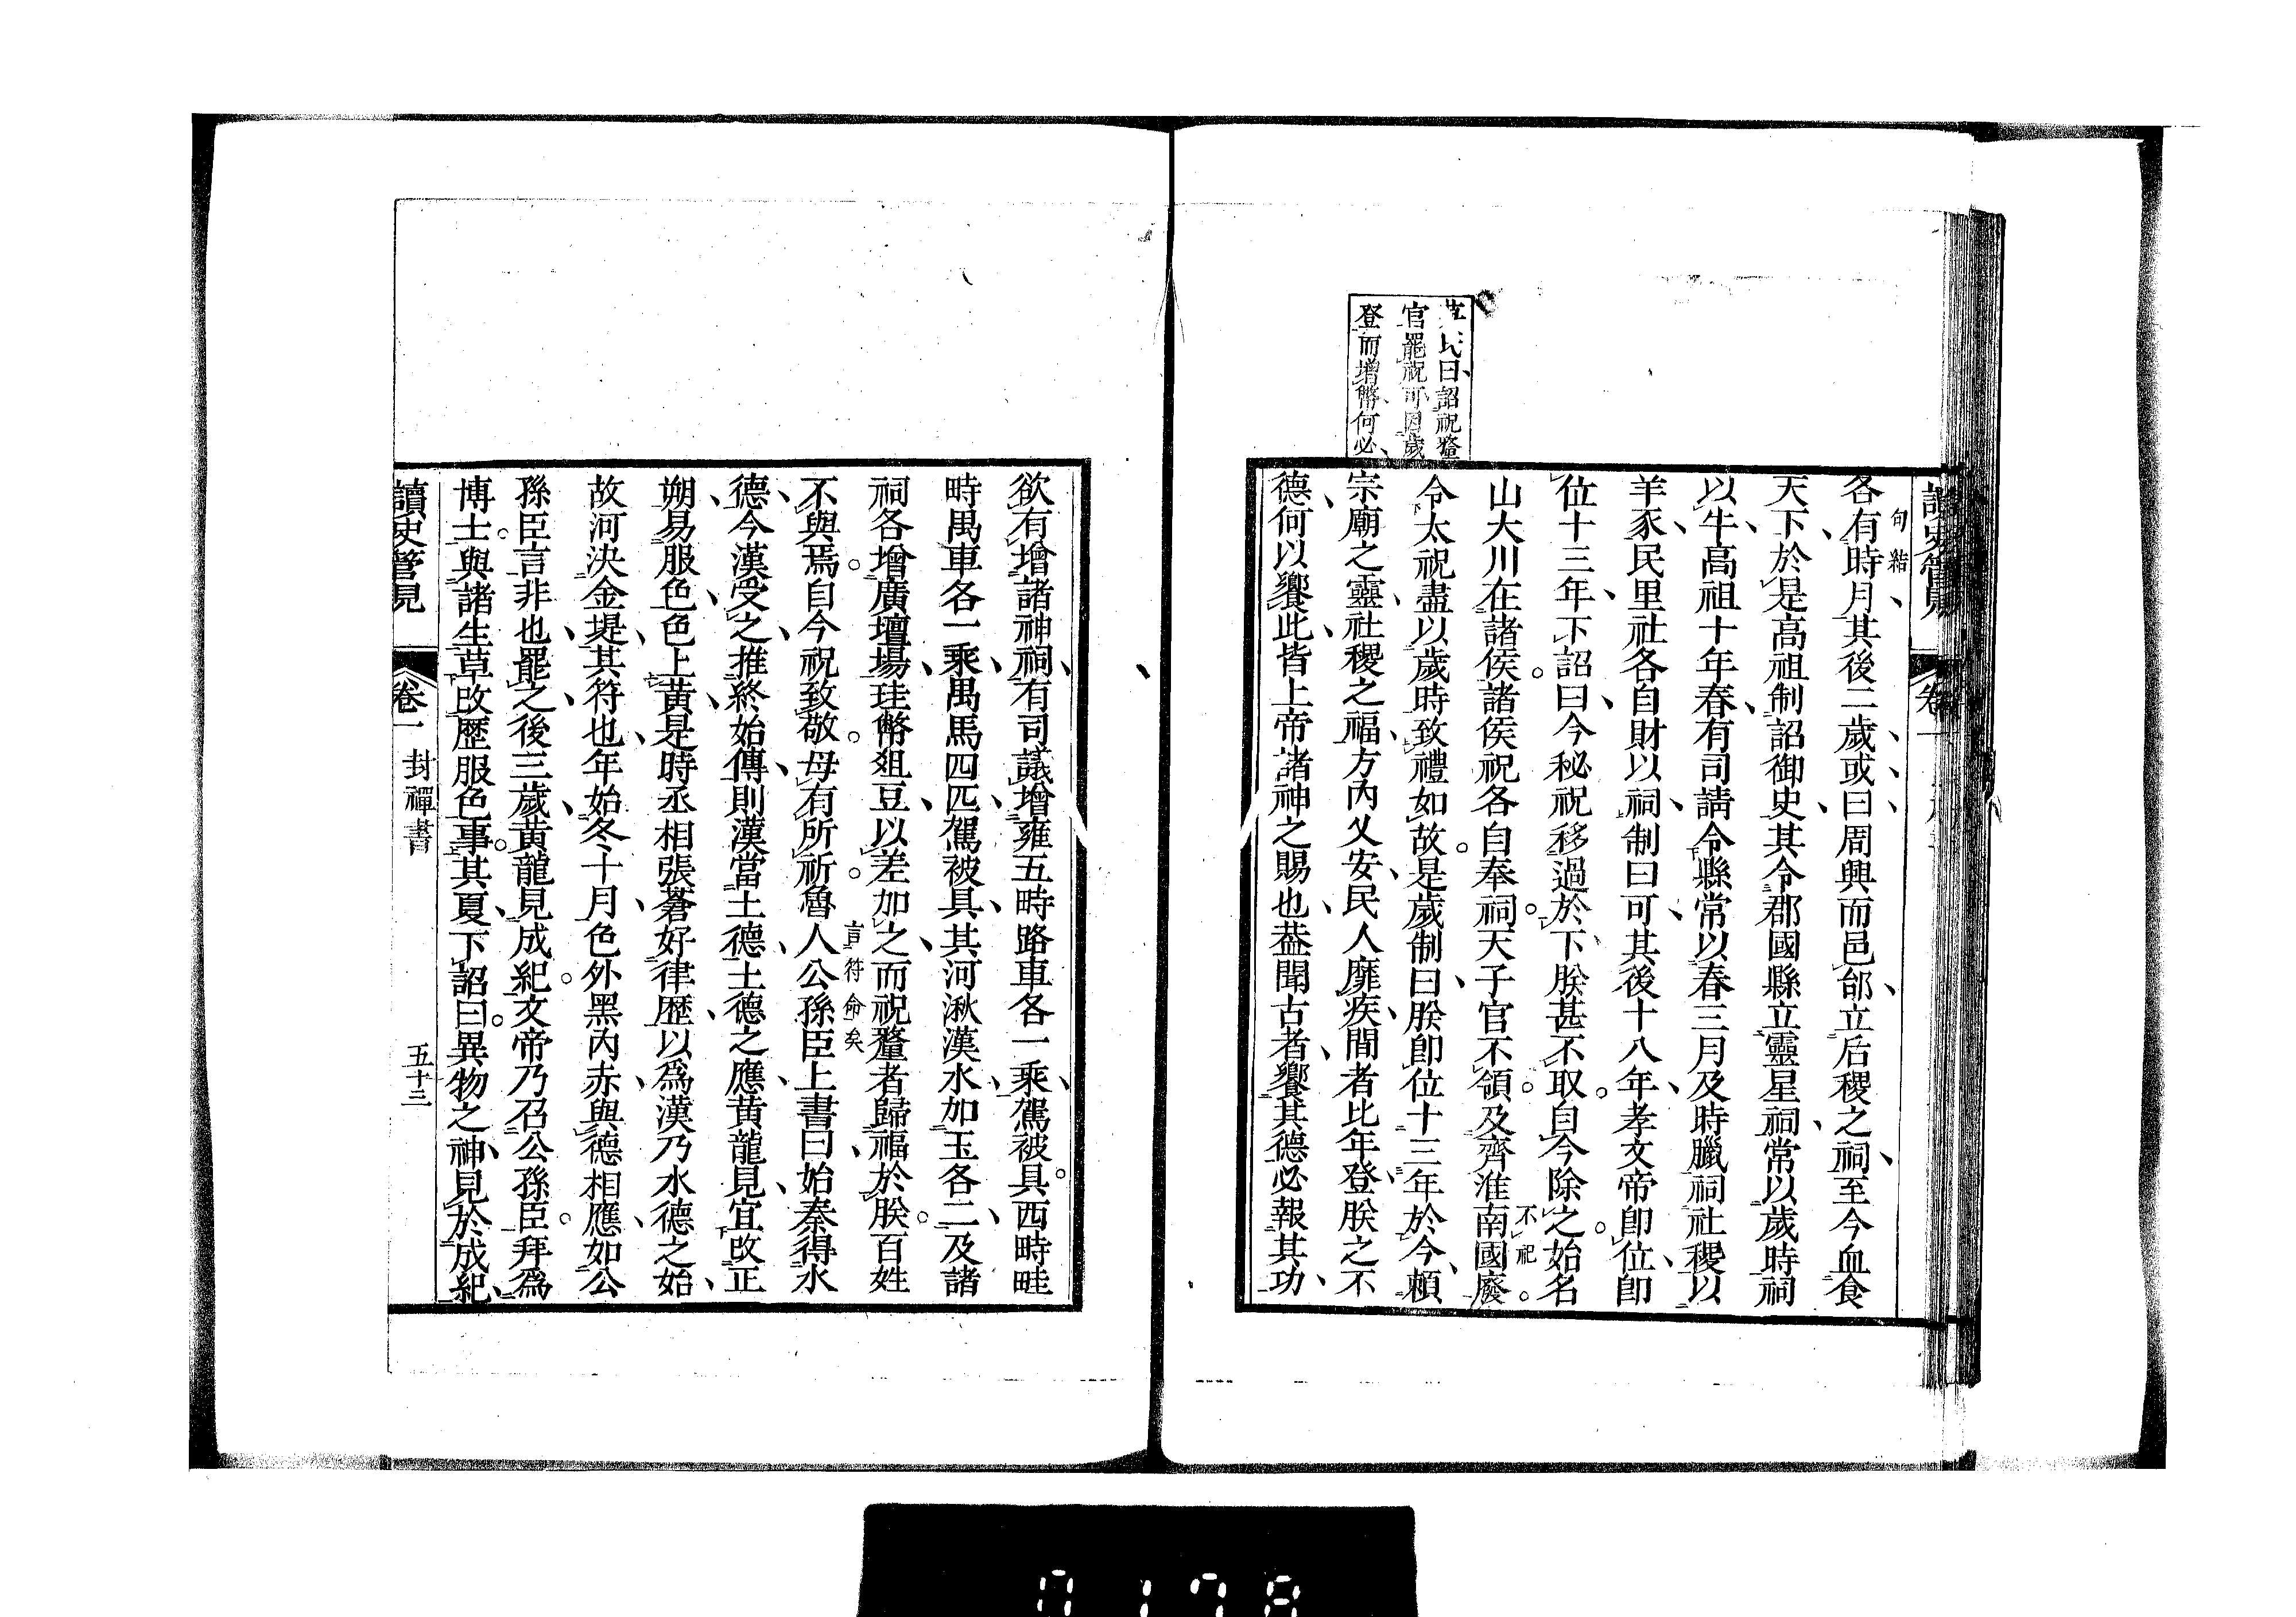 讀史管見
卷一
句
結
各有時月其後二歲或曰周興而邑邰立后稷之祠至今血食
天下於是高祖制詔御史其令郡國縣立靈星祠常以歲時祠
以牛高祖十年春有司請令縣常以春三月及時臘祠社稷以
羊豕民里社各自財以祠制曰可其後十八年孝文帝卽位卽
位十三年下詔曰今秘祝移過於下朕甚不取自今除之始名
山大川在諸侯諸侯祝各自奉祠天子官不領及齊淮南國廢
不祀
令太祝盡以歲時致禮如故是歲制曰朕卽位十三年於今賴
宗廟之靈社稷之福方內乂安民人靡疾間者比年登朕之不
德何以饗此皆上帝諸神之賜也葢聞古者饗其德必報其功
氏曰詔祝釐
官罷祝可因歲
登而增幣何必
欲有增諸神祠有司議增雍五畤路車各一乘駕被具西畤畦
畤禺車各一乘禺馬四匹駕被具其河湫漢水加玉各二及諸
祠各增廣壇場珪幣俎豆以差加之而祝釐者歸福於朕百姓
不與焉自今祝致敬毋有所祈魯人公孫臣上書曰始秦得水
言符命矣
德今漢受之推終始傳則漢當土德土德之應黃龍見宜改正
朔易服色色上黃是時丞相張蒼好律歷以爲漢乃水德之始
故河決金堤其符也年始冬十月色外黑內赤與德相應如公
孫臣言非也罷之後三歲黃龍見成紀文帝乃召公孫臣拜爲
博士與諸生草改歷服色事其夏下詔曰異物之神見於成紀
讀史管見
卷一
封禪書
五十三
0178